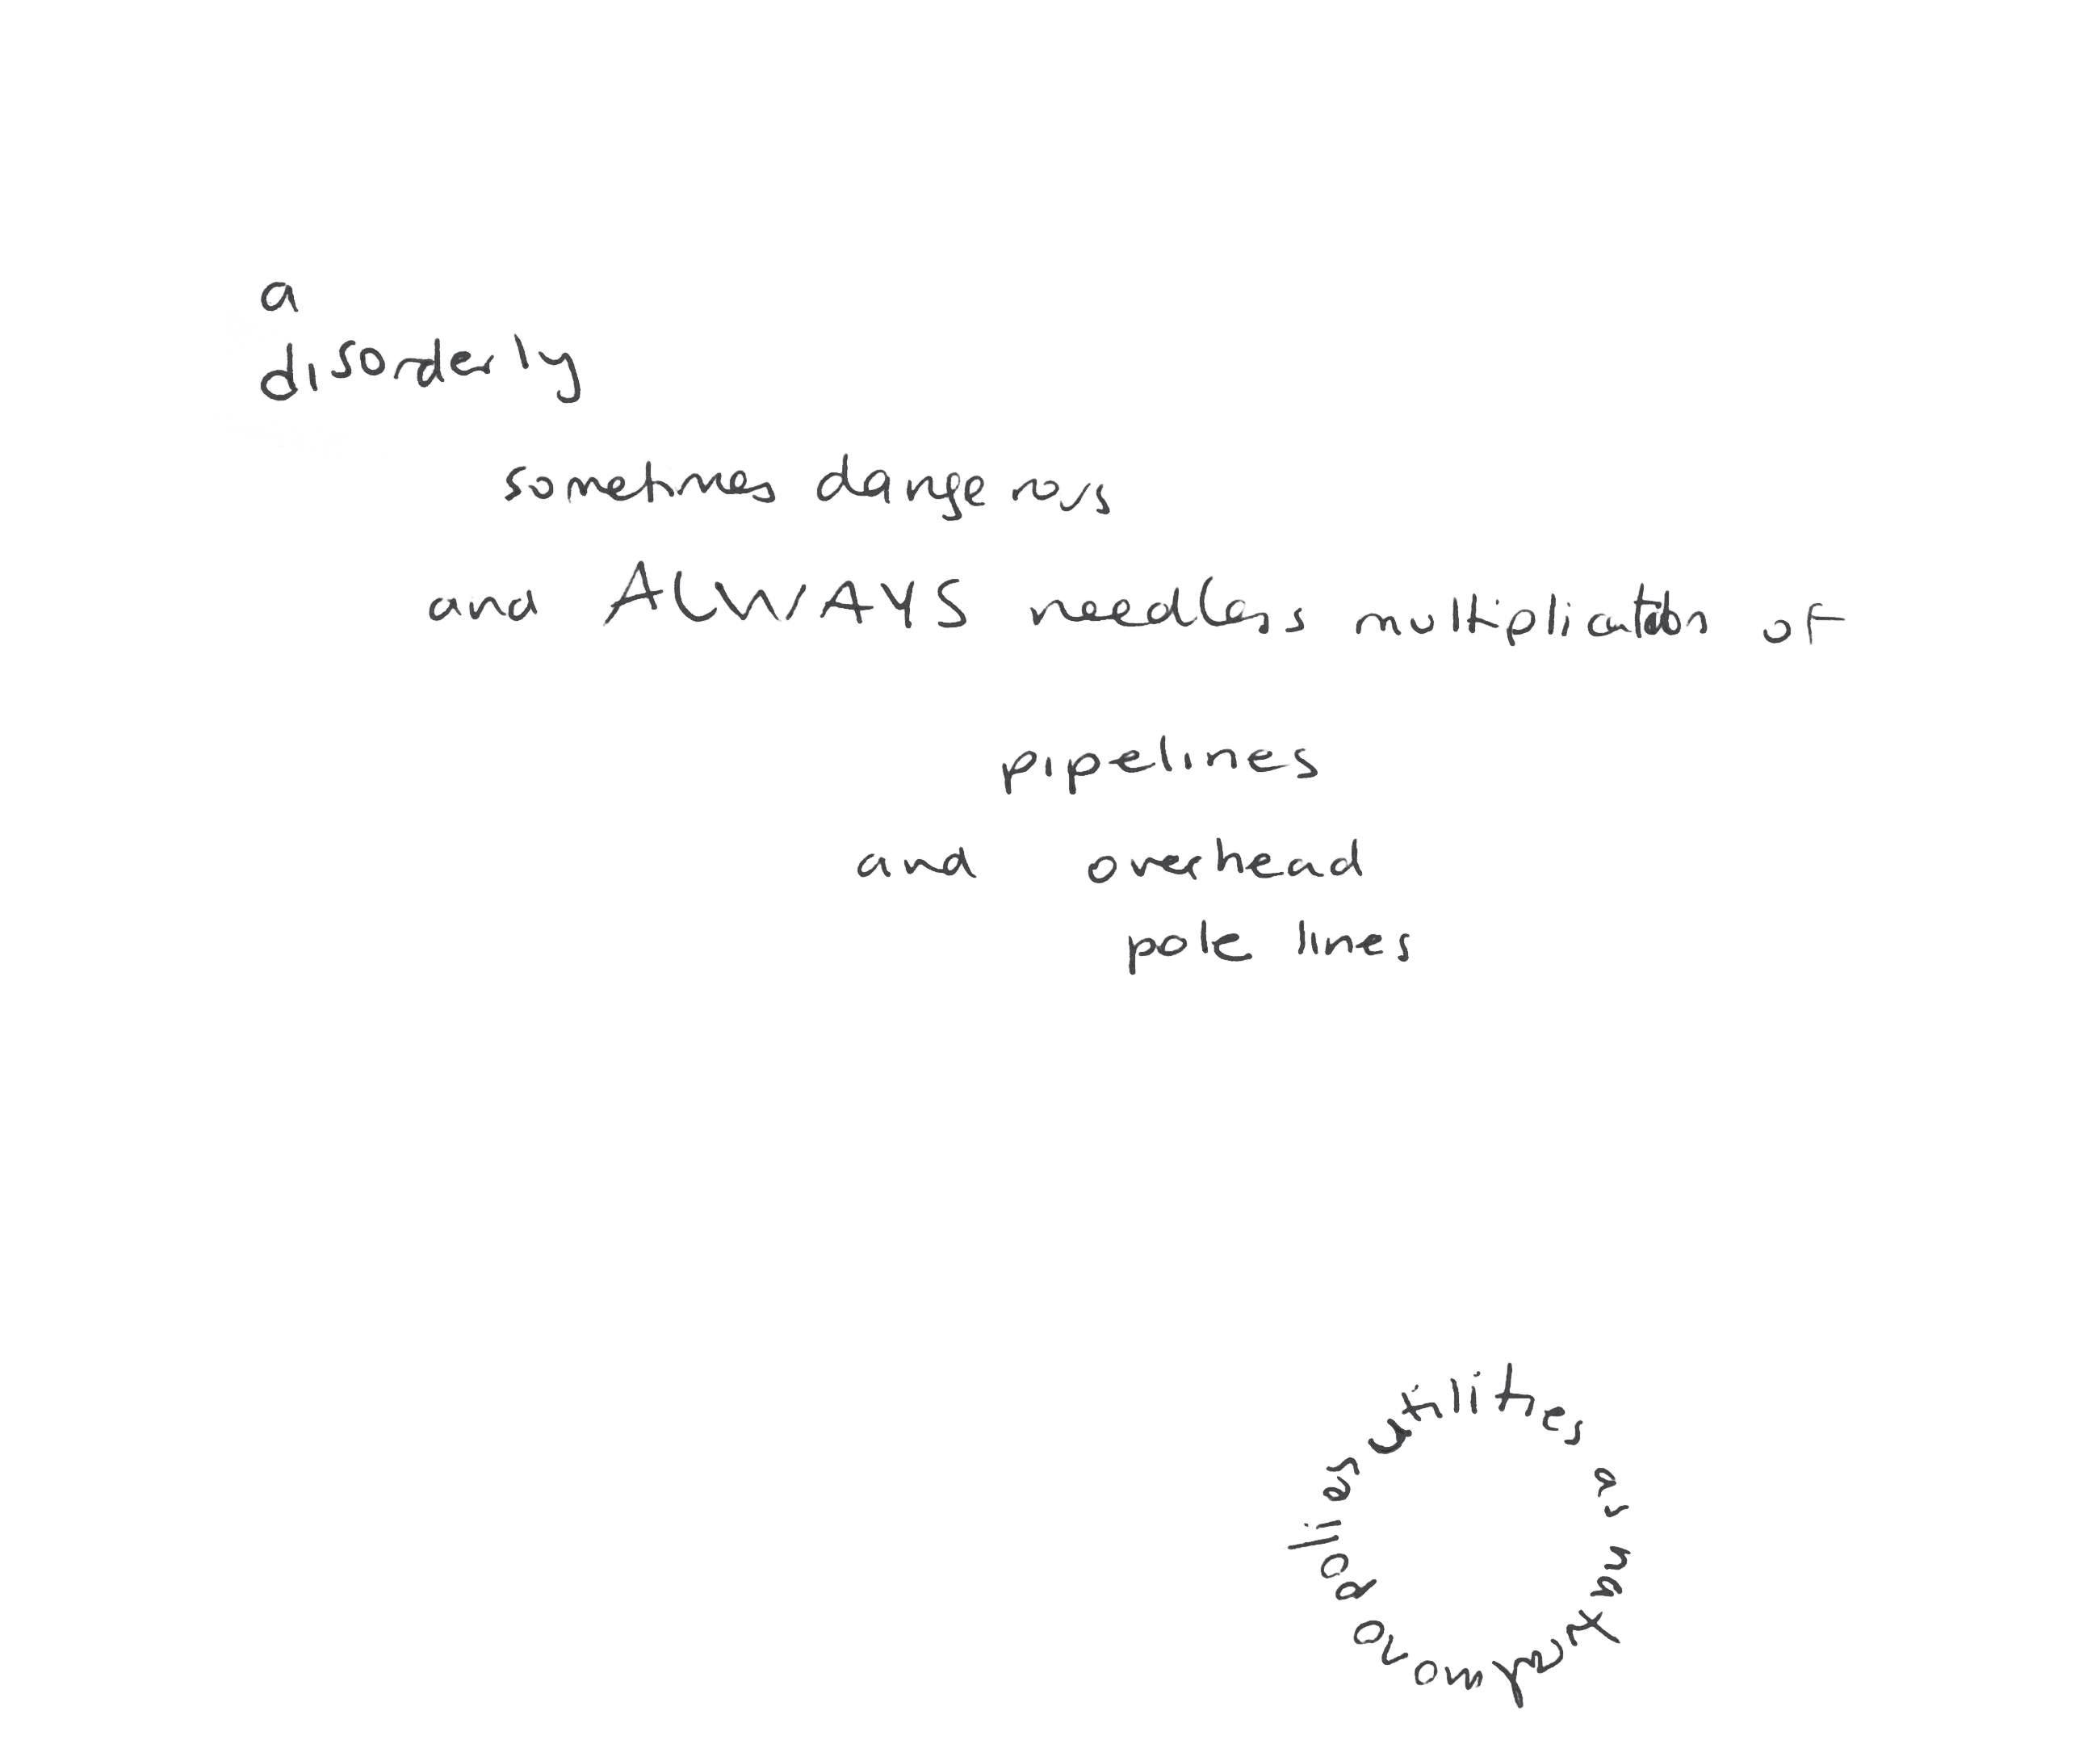 a
disorderly
sometimes dangerous
and ALWAYS needless multiplication of
pipelines
and overhead
pole lines
utilities as natural monopolies